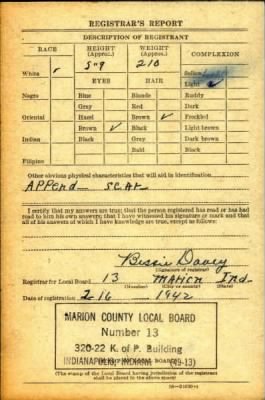 REGISTRAR'S REPORT
DESCRIPTION OF REGISTRANT
RACE HEIGHT (Approx.) WEIGHT (Approx.) COMPLEXION
White ✓ 5-9 210 Sallow
EYES HAIR Light ✓
Negro Blue Blonde Ruddy
Gray Red Dark
Oriental Hazel Brown ✓ Freckled
Brown ✓ Black Light brown
Indian Black Gray Dark brown
Bald Black
Filipino
Other obvious physical characteristics that will aid in identification
APPEND SCAR
I certify that my answers are true; that the person registered has read or has had
read to him his own answers; that I have witnessed his signature or mark and that
all of his answers of which I have knowledge are true, except as follows:
Bessie Davey
(Signature of registrar)
Registrar for Local Board 13 Marion Ind
(Number) (City or county) (State)
Date of registration 2-16 1942
MARION COUNTY LOCAL BOARD
Number 13
320-22 K. of P. Building
INDIANAPOLIS, INDIANA (49-13)
(The stamp of the Local Board having jurisdiction of the registrant
shall be placed in the above space.)